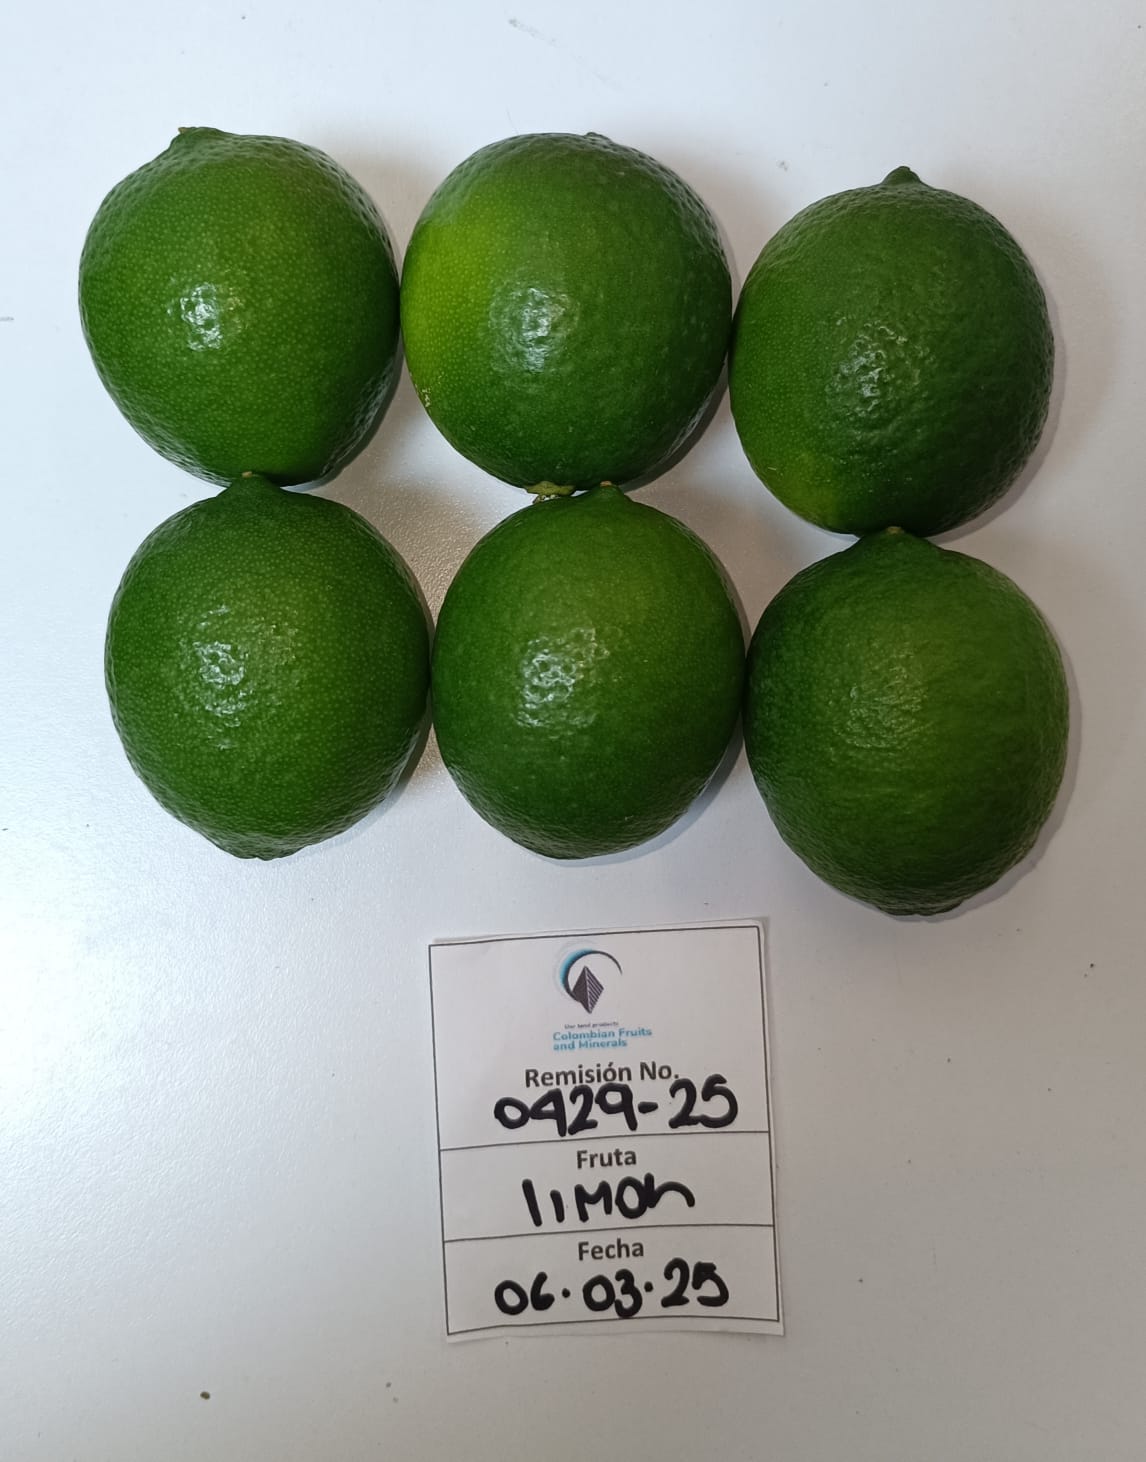 Our land products
Colombian Fruits
and Minerals
Remisión No.
0429-25
Fruta
limon
Fecha
06.03.25